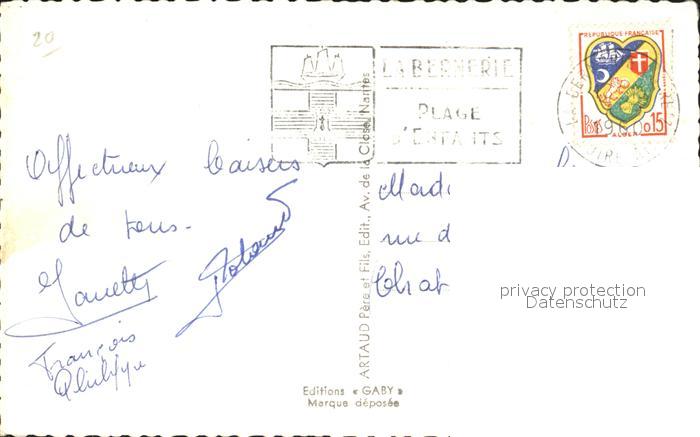 20
LA BERNERIE
PLAGE
D'ENFANTS
REPUBLIQUE FRANÇAISE
Postes 0.15
ALGER
Affectueux baisers
de tous.
François
Philippe
Mad
rue d
Chat
privacy protection
Datenschutz
ARTAUD Père et Fils, Edit., Av. de la Close, Nantes
Editions « GABY »
Marque déposée